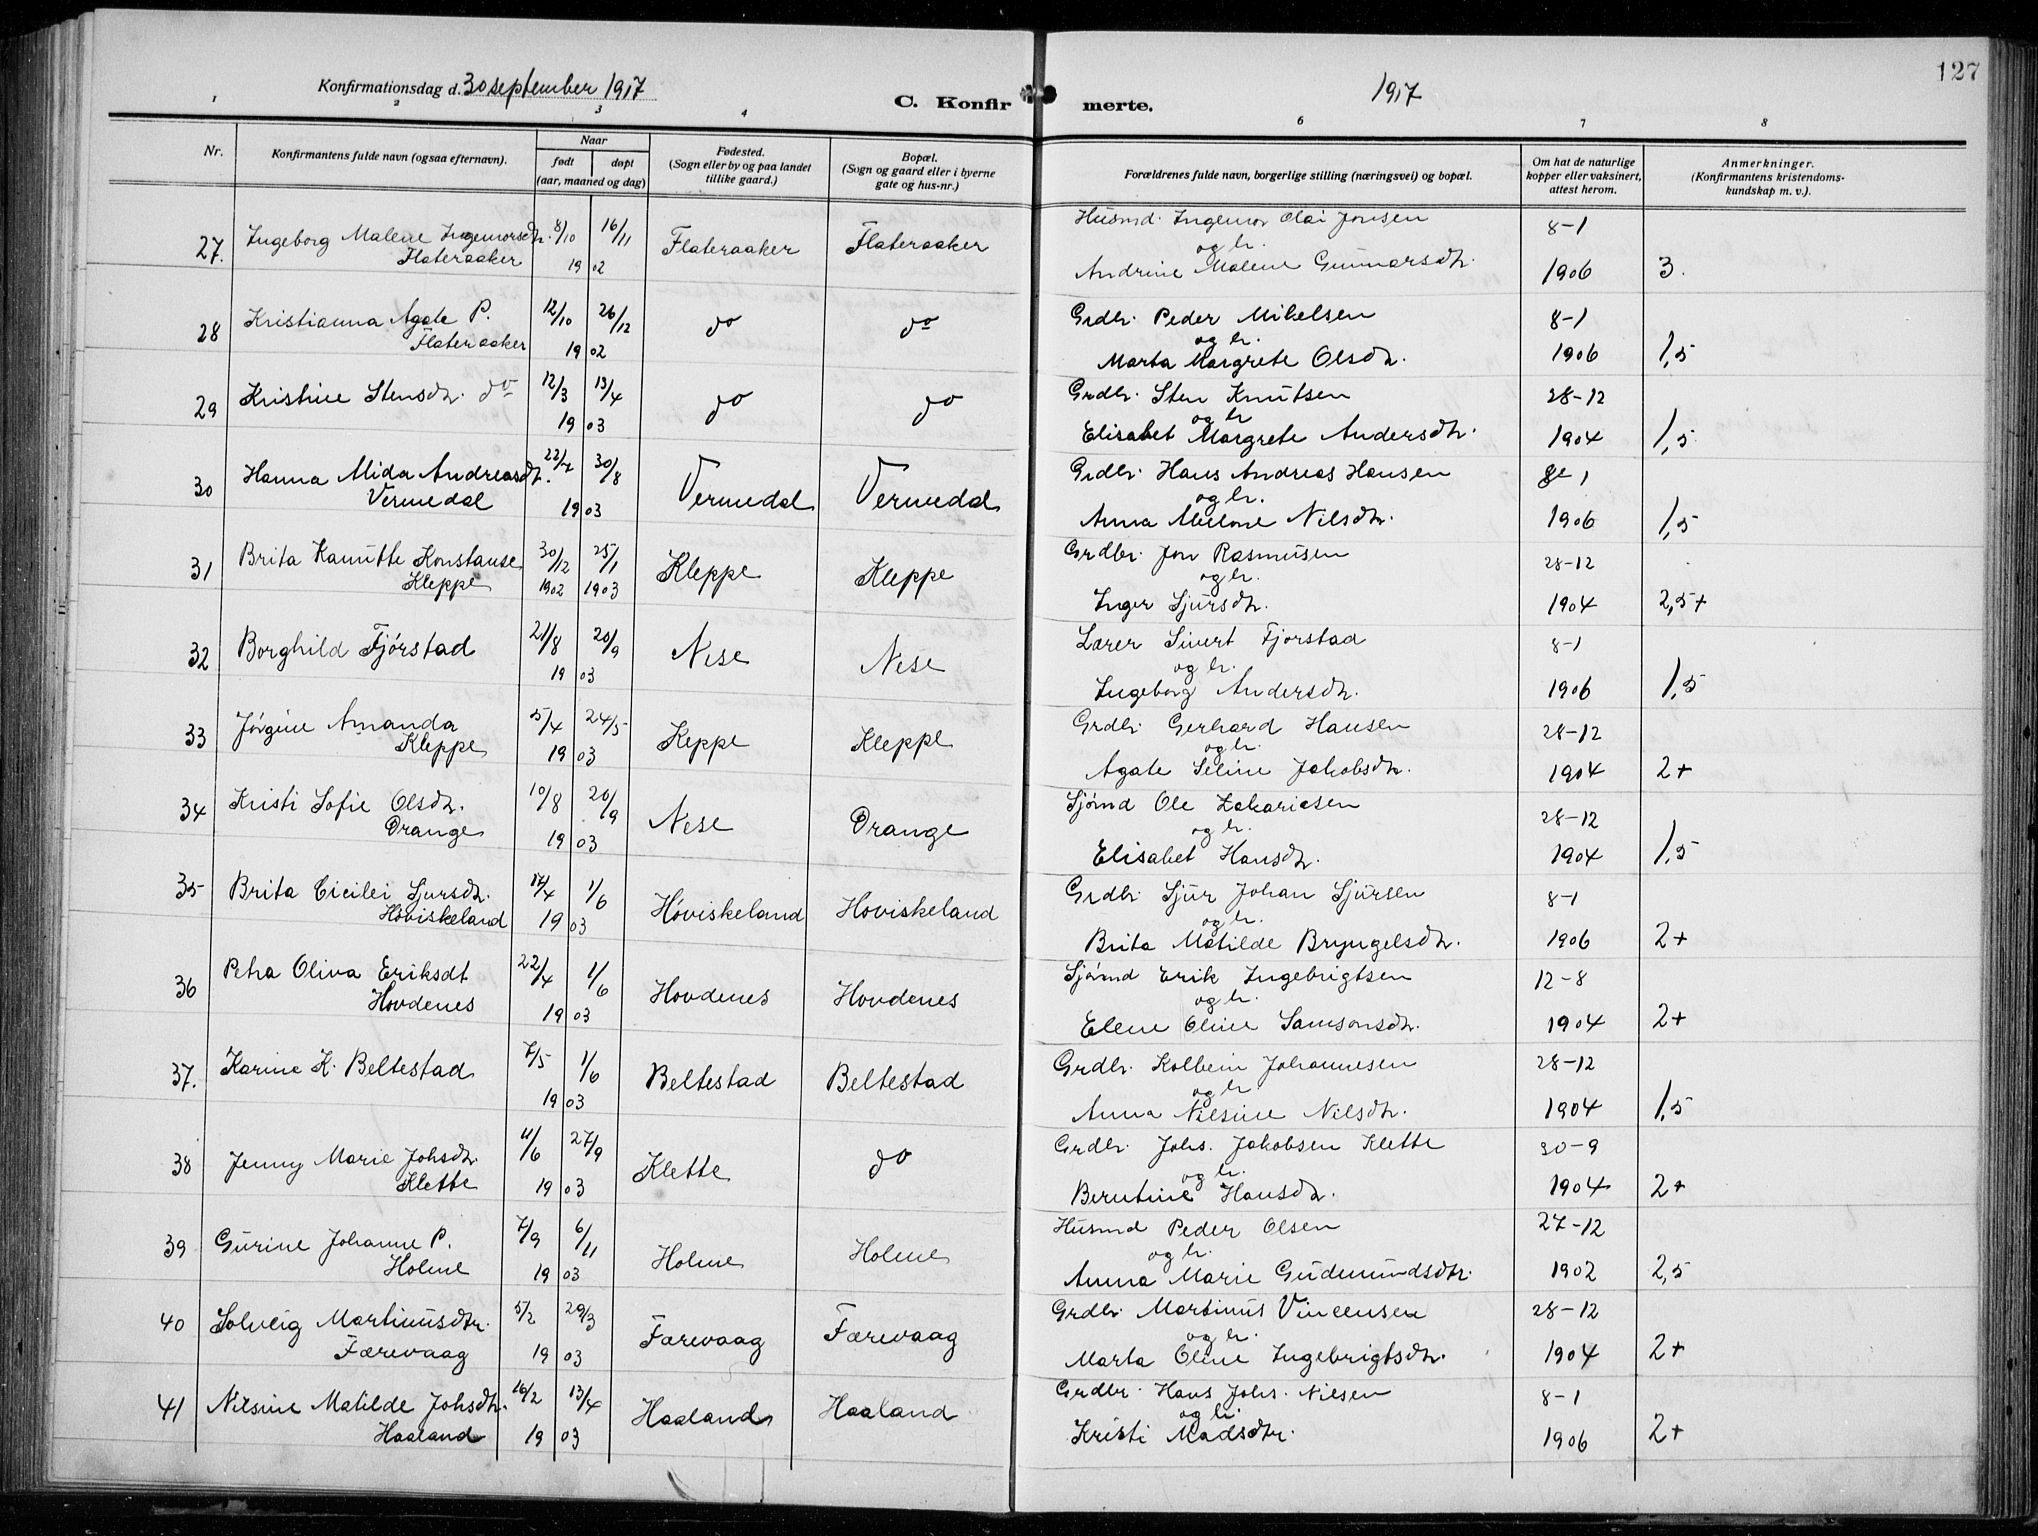 127
Konfirmationsdag d. 30 september 1917
1917
C. Konfirmerte.
1 2 3 4 6 7 8
Nr.
Konfirmantens fulde navn (ogsaa efternavn).
Naar
født døpt
(aar, maaned og dag)
Fødested.
(Sogn eller by og paa landet
tillike gaard.)
Bopæl.
(Sogn og gaard eller i byerne
gate og hus-nr.)
Forældrenes fulde navn, borgerlige stilling (næringsvei) og bopæl.
Om hat de naturlige
kopper eller vaksinert,
attest herom.
Anmerkninger.
(Konfirmantens kristendoms-
kundskap m. v.)
27. Ingeborg Malene Ingemorsdtr. 8/10 16/11 Flateraaker Flateraaker Husmd. Ingemor Olai Jonsen 8-1
Flateraaker 19 02 og h. Andrine Malene Gunnarsdtr. 1906 3.
28 Kristianna Agate P. 12/10 26/12 do do Grdbr. Peder Mikelsen 8-1
Flateraaker 19 02 og h. Marta Margrete Olsdtr. 1906 1,5
29 Kristine Stensdtr. do 12/3 13/4 do do Grdbr. Sten Knutsen 28-12
19 03 og h. Elisabet Margrete Andersdtr. 1904 1,5
30 Hanna Mida Andreasdtr. 22/7 30/8 Vermedal Vermedal Grdbr. Hans Andreas Hansen 8-1
Vermedal 19 03 og h. Anna Nilsdtr. 1906 1,5
31 Brita Kanutte Konstanse 30/12 25/1 Kleppe Kleppe Grdbr. Jon Rasmusen 28-12
Kleppe 1902 1903 og h. Inger Sjursdtr. 1904 2,5+
32 Borghild Fjørstad 21/8 20/9 Nese Nese Lærer Sivert Fjorstad 8-1
19 03 og h. Ingeborg Andersdtr. 1906 1,5
33 Jørgine Amanda 5/4 24/5 Keppe Kleppe Grdbr. Gerhard Hansen 28-12
Kleppe 19 03 og h. Agate Seline Jakobsdtr. 1904 2+
34 Kristi Sofie Olsdtr. 10/8 20/9 Nese Drange Sjømd Ole Zakariesen 28-12
Drange 19 03 og h. Elisabet Hansdtr. 1904 1,5
35 Brita Cicilei Sjursdtr. 17/4 1/6 Høviskeland Hoviskeland Grdbr. Sjur Johan Sjursen 8-1
Høviskeland 19 03 og h. Brita Matilde Bryngelsdtr. 1906 2+
36 Petra Oliva Eriksdt 22/4 1/6 Hovdenes Hovdenes Sjømd Erik Ingebrigtsen 12-8
Hovdenes 19 03 og h. Elene Oline Samsonsdtr. 1904 2+
37. Karine K. Beltestad 7/5 1/6 Beltestad Beltestad Grdbr. Kolbein Johannesen 28-12
19 03 og h. Anna Nilsine Nilsdtr. 1904 1,5
38 Jenny Marie Johsdtr. 11/6 27/9 Klette do Grdbr. Johs. Jakobsen Klette 30-9
Klette 19 03 og h. Berntine Hansdtr. 1904 2+
39 Gurine Johanne P. 7/9 6/11 Holme Holme Husmd Peder Olsen 27-12
Holme 19 03 og h. Anna Marie Gudmundsdtr. 1902 2,5
40 Solveig Martinusdtr. 5/2 29/3 Færevaag Færevaag Grdbr. Martinus Vincensen 28-12
Færevaag 19 03 og h. Marta Oline Ingebrigtsdtr. 1904 2+
41 Nilsine Matilde Johsdtr. 16/2 13/4 Haaland Haaland Grdbr. Hans Johs. Nilsen 8-1
Haaland 19 03 og h. Kristi Madsdtr. 1906 2+